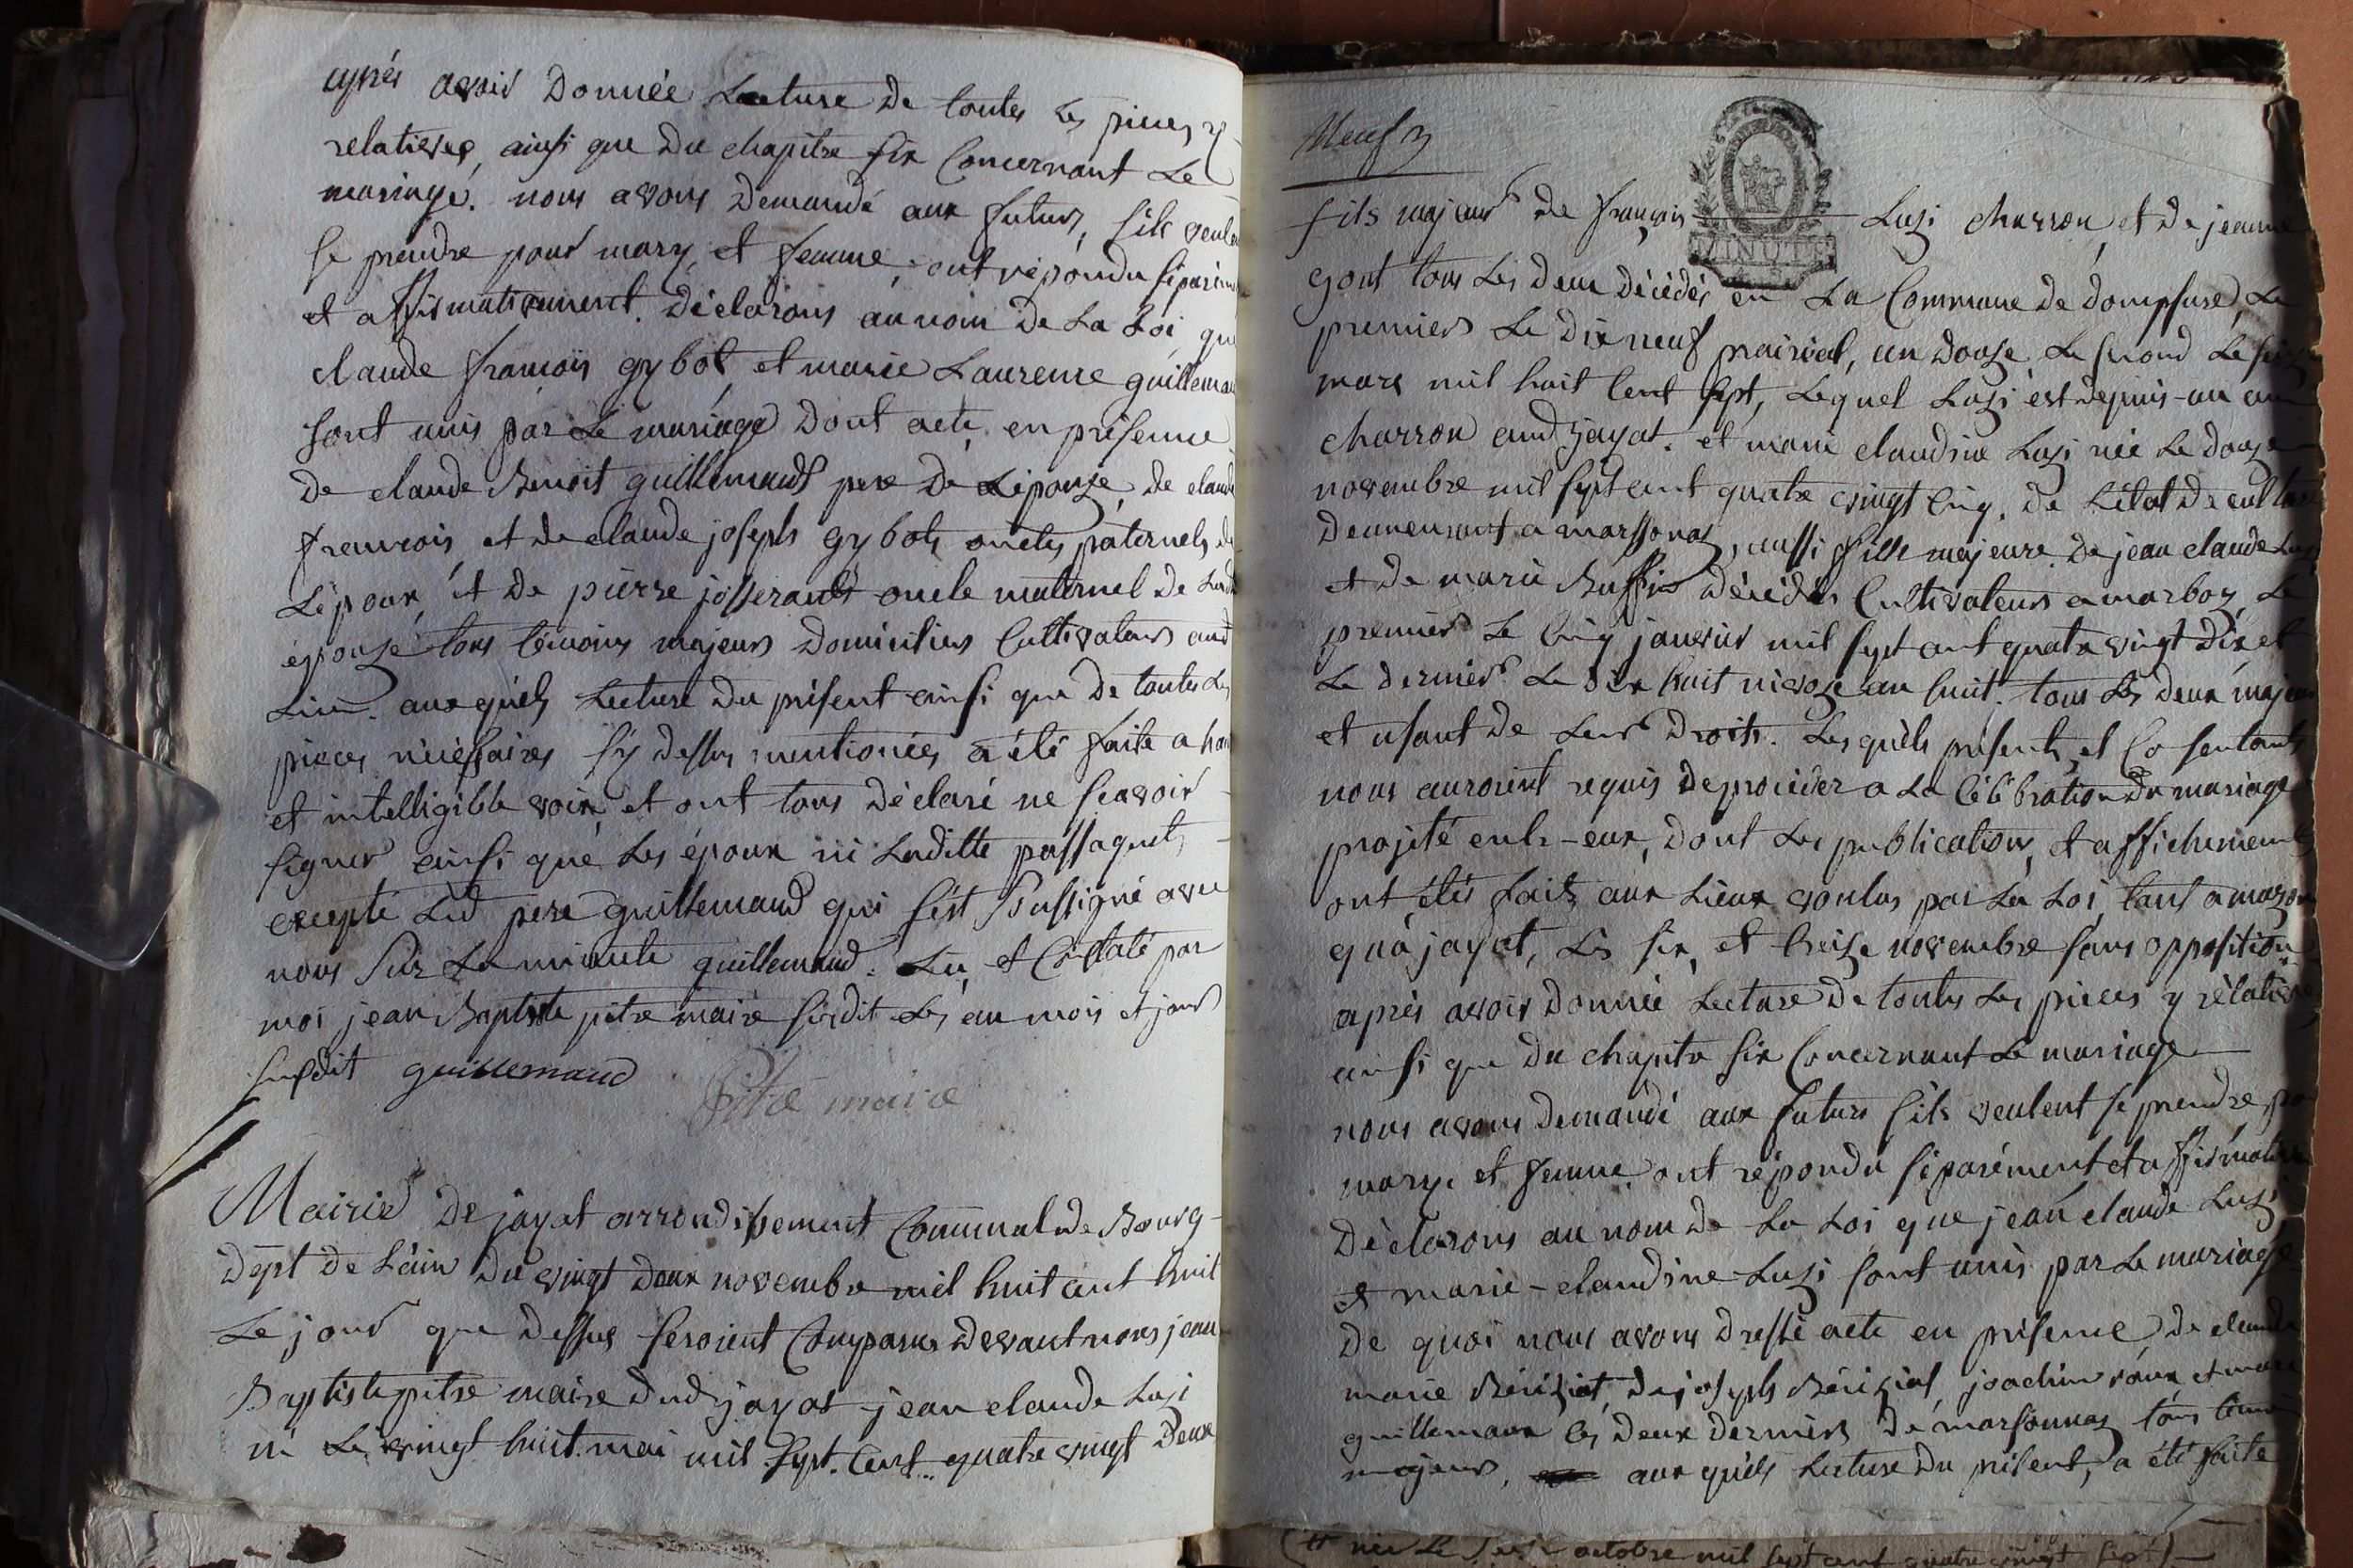 après avoir Donnée Lecture De toutes Les pieces y
relatives, ainsi que Du chapitre six Concernant Le
mariage. nous avons Demandé aux futurs, sils veulent
se prendre pour mary et femme, ont répondu séparément
et affirmativement. Déclarons au nom De La Loi, que
claude françois gybot et marie Laurence guillemaud
sont unis par Le mariage Dont acte en présence
De claude Benoit guillemaud pere De Lépouse, De claude
francois, et De claude joseph gybots oncles paternels de
Lépoux, et De pierre josserand oncle maternel De Lad
épouse tous témoins majeurs Domiciliés Cultivateurs aud
Lieu. auxquels Lecture Du présent ainsi que De toutes Les
pieces nécessaires sy dessus mentionées a été faite a haute
et intelligible voix et ont tous Déclaré ne scavoir
signer ainsi que Les époux ni Laditte passaquet
excepté Led pere guillemaud qui sést soussigné avec
nous sur La minute guillemaud. Lu, et Constaté par
moi jean Baptiste pitre maire susdit Les an mois et jour
susdit guillemaud
Pitre maire
Mairie De jayat arrondissement Communal de Bourg
Dept De Lain Du vingt Deux novembre mil huit cent huit
Le jour que Dessus seroient Comparus Devant nous jean
Baptiste pitre maire Dud jayat jean claude Luzi
né Le vingt huit mai mil sept Cent quatre vingt Deux
Neuf
fils majeur De françois Luzi charron, et De jeanne
MINUTE
gont tous Les Deux Décédés en La Commune De Dompsure, Le
premier Le Dix neuf prairial, an Douze, Le second Le
mars mil huit Cent sept, Lequel Luzi est depuis un an
charron aud jayat. et marie claudine Luzi née Le Douze
novembre mil sept cent quatre vingt Cinq. De Létat De culture
Demeurant a marsonas, aussi fille majeure De jean claude Luzi
et De marie Buffin Décédés Cultivateurs a marboz, Le
premier Le Cinq janvier mil sept cent quatre vingt Dix et
Le Dernier Le Dix huit nivose an huit. tous Les Deux majeurs
et usant De Leur Droits. Lesquels présents, et Cosentants
nous auroient requis De procéder a La Célébration Du mariage
projété entr-eux, Dont Les publications, et affichements
ont étés faits aux Lieux voulus par La Loi, tant a
qua jayat, Les six, et treize novembre sans opposition
après avoir Donnée Lecture De toutes Les pieces y rélatives
ainsi que Du chapitre six Concernant Le mariage
nous avons Demandé aux futurs sils veulent se prendre pour
mary, et femme, ont répondu séparément et affirmative
Déclarons au nom De La Loi que jean claude Luzi
et marie-claudine Luzi sont unis par Le mariage
De quoi nous avons Dressé acte en présence De claude
marie Béréziat, De joseph Béréziat, joachim roux, et marie
guillemaux les Deux Derniers De marsonnas tous témoins
majeurs, auxquels Lecture Du présent, a été faite
née Le octobre mil sept cent quatre vingt